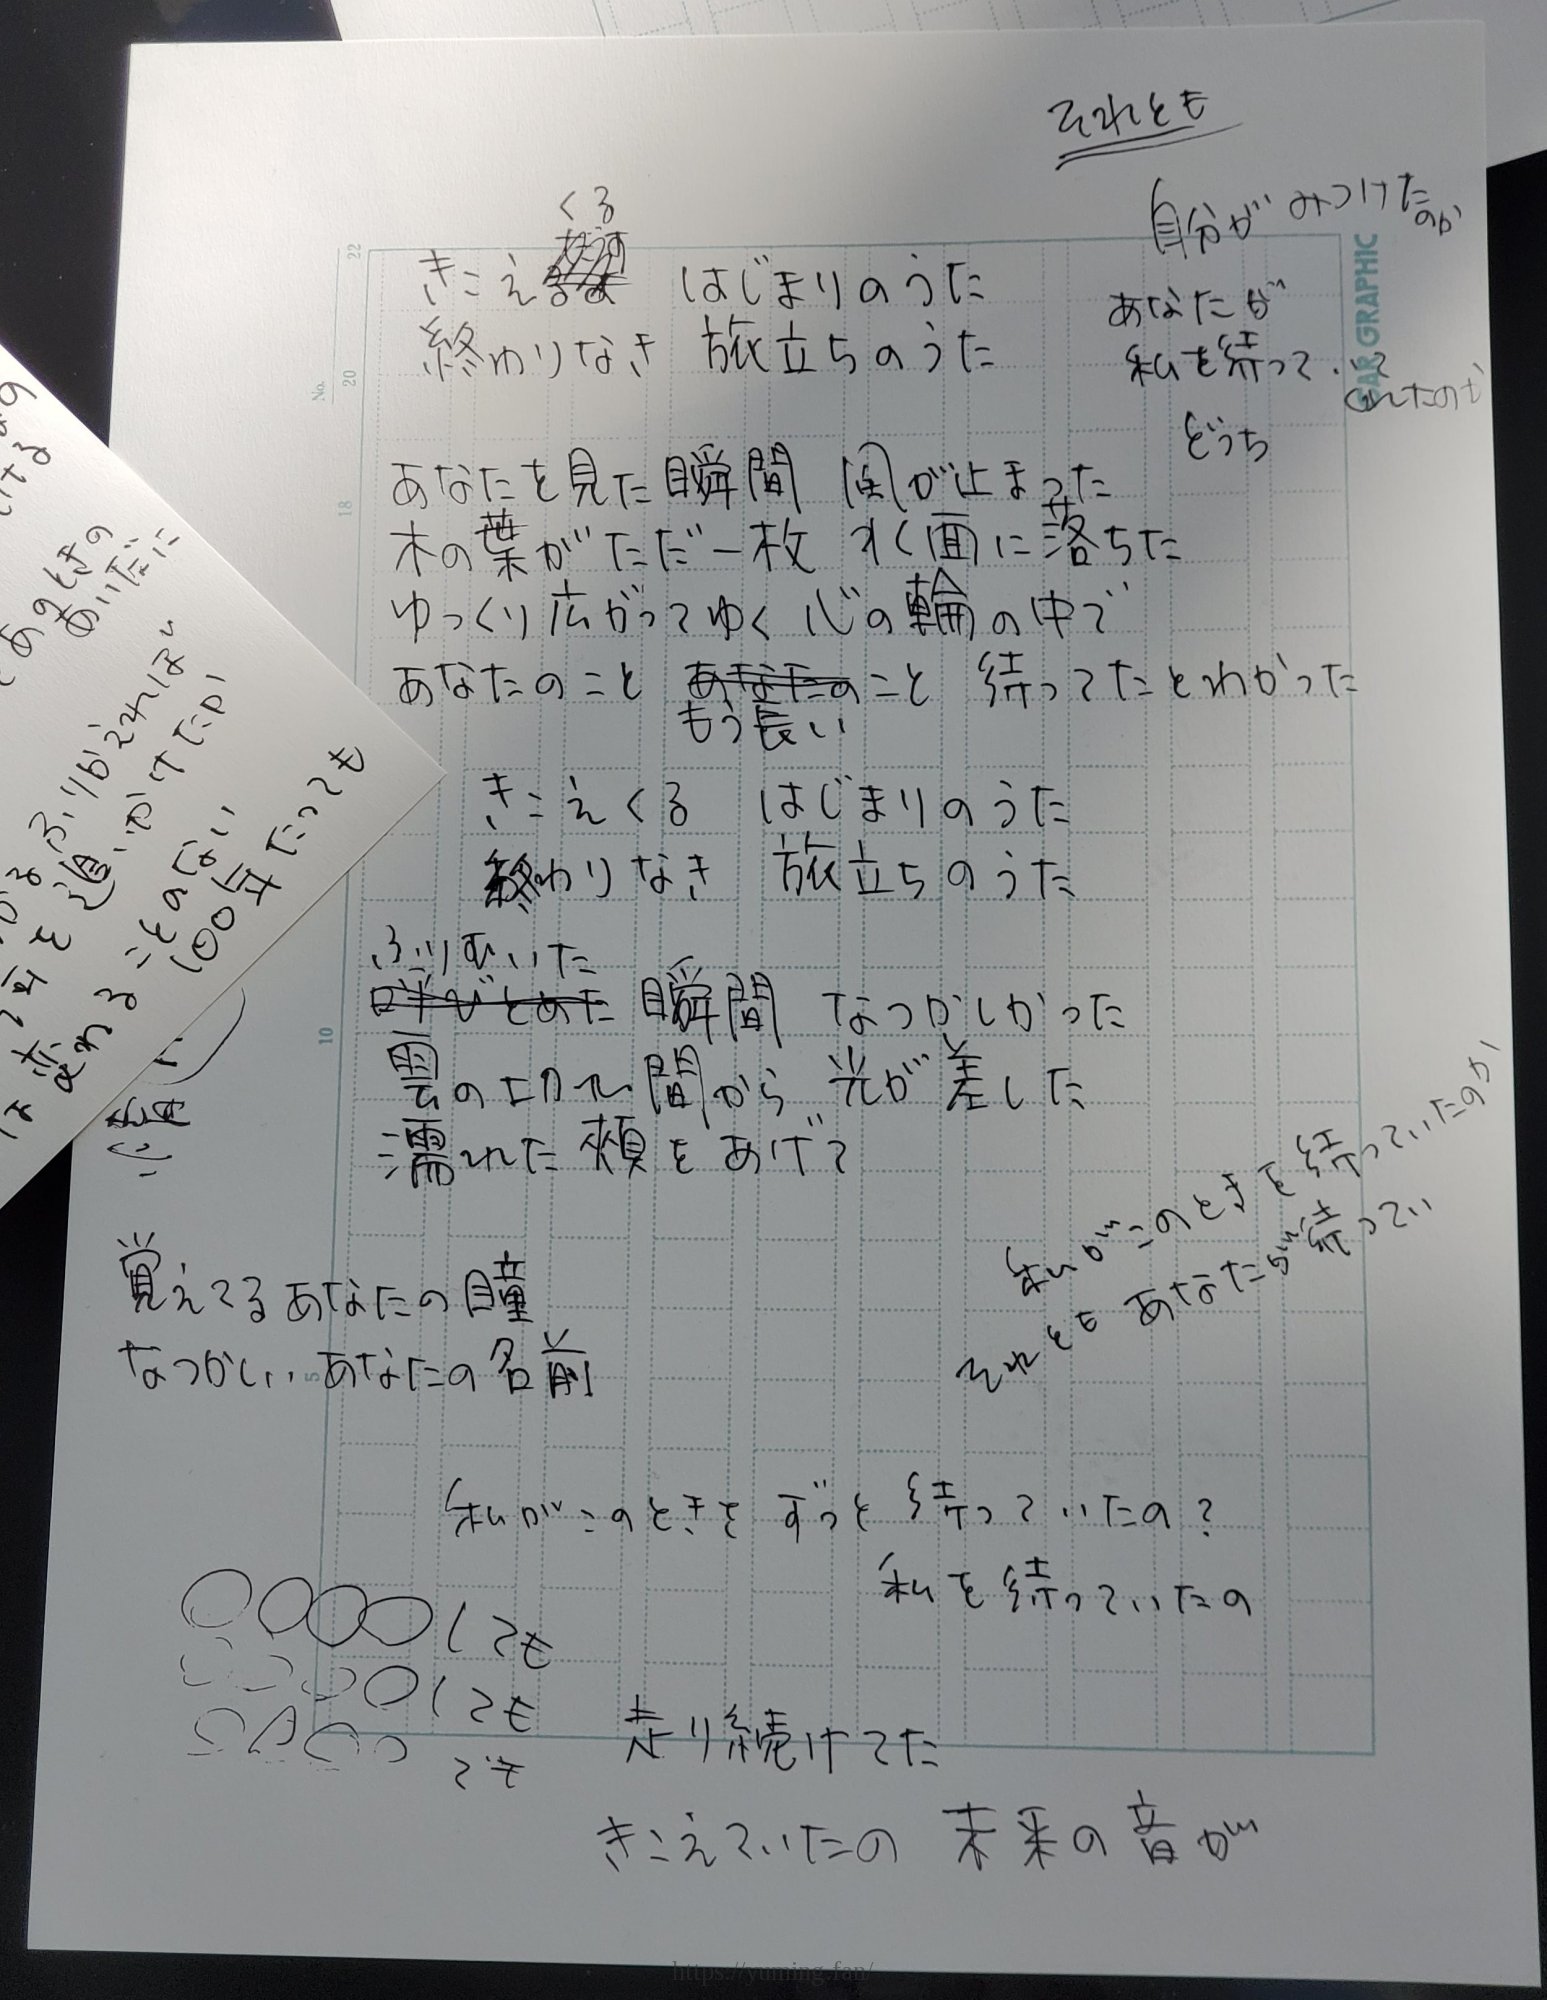 それとも
自分がみつけたのか
あなたが
私を待って
くれたのか
どっち
くる
きこえ はじまりのうた
終わりなき 旅立ちのうた
あなたを見た瞬間 風が止まった
木の葉がただ一枚 水面に落ちた
ゆっくり広がってゆく 心の輪の中で
あなたのこと あなたのこと 待ってたとわかった
もう長い
きこえくる はじまりのうた
終わりなき 旅立ちのうた
ふりむいた
呼びとめた 瞬間 なつかしかった
雲の切れ間から 光が差した
濡れた頬をあげて
私がこのときを待っていたのか
それとも あなたが待ってい
覚えてるあなたの瞳
なつかしいあなたの名前
私がこのときを ずっと 待っていたの?
私を待っていたの
してても
しても
ても
走り続けてた
きこえていたの 未来の音が
あのときの
あいだに
ふりがそれば
を追いかけてたか
変わることのない
100年たっても
No.
22
20
18
10
5
CAR GRAPHIC
https://yuming.fan/